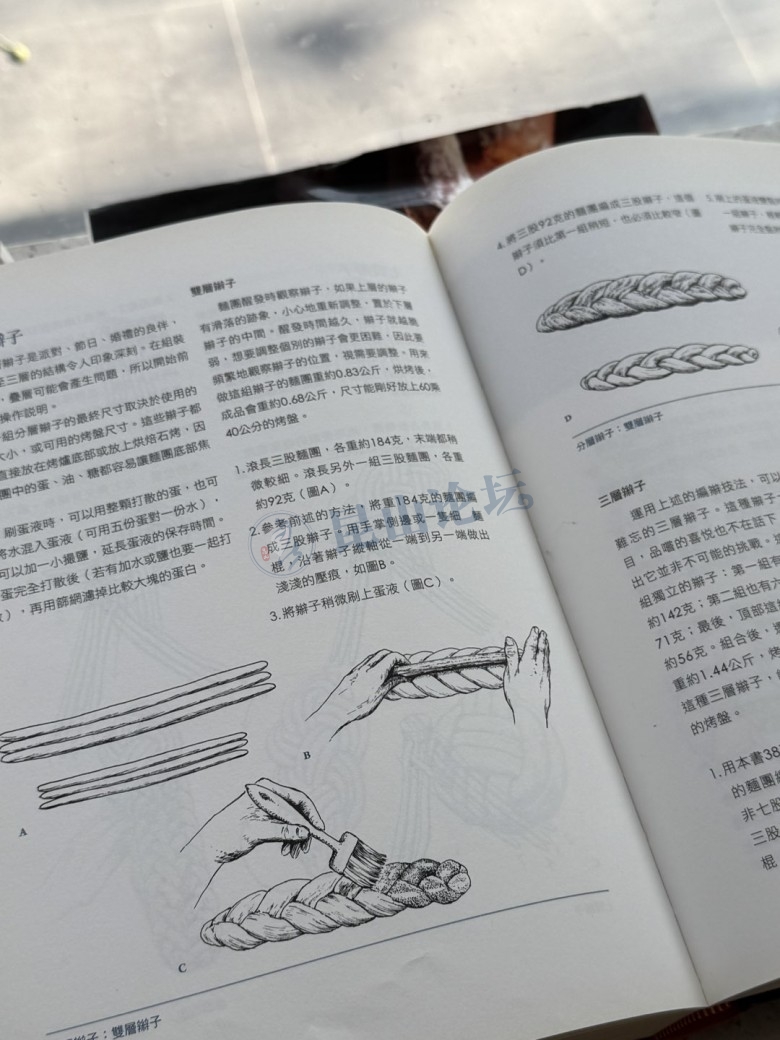 辮子
辮子是派對、節日、婚禮的良伴，
至三層的結構令人印象深刻。在組裝
，疊層可能會產生問題，所以開始前
操作說明。
組分層辮子的最終尺寸取決於使用的
大小，或可用的烤盤尺寸。這些辮子都
直接放在烤爐底部或放上烘焙石烤，因
團中的蛋、油、糖都容易讓麵團底部焦
刷蛋液時，可以用整顆打散的蛋，也可
將水混入蛋液（可用五份蛋對一份水），
可以加一小撮鹽，延長蛋液的保存時間。
蛋完全打散後（若有加水或鹽也要一起打
），再用篩網濾掉比較大塊的蛋白。
雙層辮子
麵團醒發時觀察辮子，如果上層的辮子
有滑落的跡象，小心地重新調整，置於下層
辮子的中間。醒發時間越久，辮子就越脆
弱，想要調整個別的辮子會更困難，因此要
頻繁地觀察辮子的位置，視需要調整。用來
做這組辮子的麵團重約0.83公斤，烘烤後，
成品會重約0.68公斤，尺寸能剛好放上60乘
40公分的烤盤。
1.滾長三股麵團，各重約184克，末端都稍
微較細。滾長另外一組三股麵團，各重
約92克（圖A）。
2.參考前述的方法，將重184克的麵團編
成三股辮子，用手掌側邊或一雙粗
棍，沿著辮子縱軸從一端到另一端做出
淺淺的壓痕，如圖B。
3.將辮子稍微刷上蛋液（圖C）。
A
B
C
辮子：雙層辮子
4.將三股92克的麵團編成三股辮子，這種
辮子須比第一組稍短，也必須比較窄（圖
D）。
D
分層辮子：雙層辮子
三層辮子
運用上述的編辮技巧，可以
難忘的三層辮子。這種辮子
目，品嚐的喜悅也不在話下
出它並非不可能的挑戰。這
組獨立的辮子：第一組有
約142克；第二組也有
71克；最後，頂部這
約56克。組合後，
重約1.44公斤，烤
這種三層辮子，
的烤盤。
1.用本書38
的麵團
非七股
三股
棍